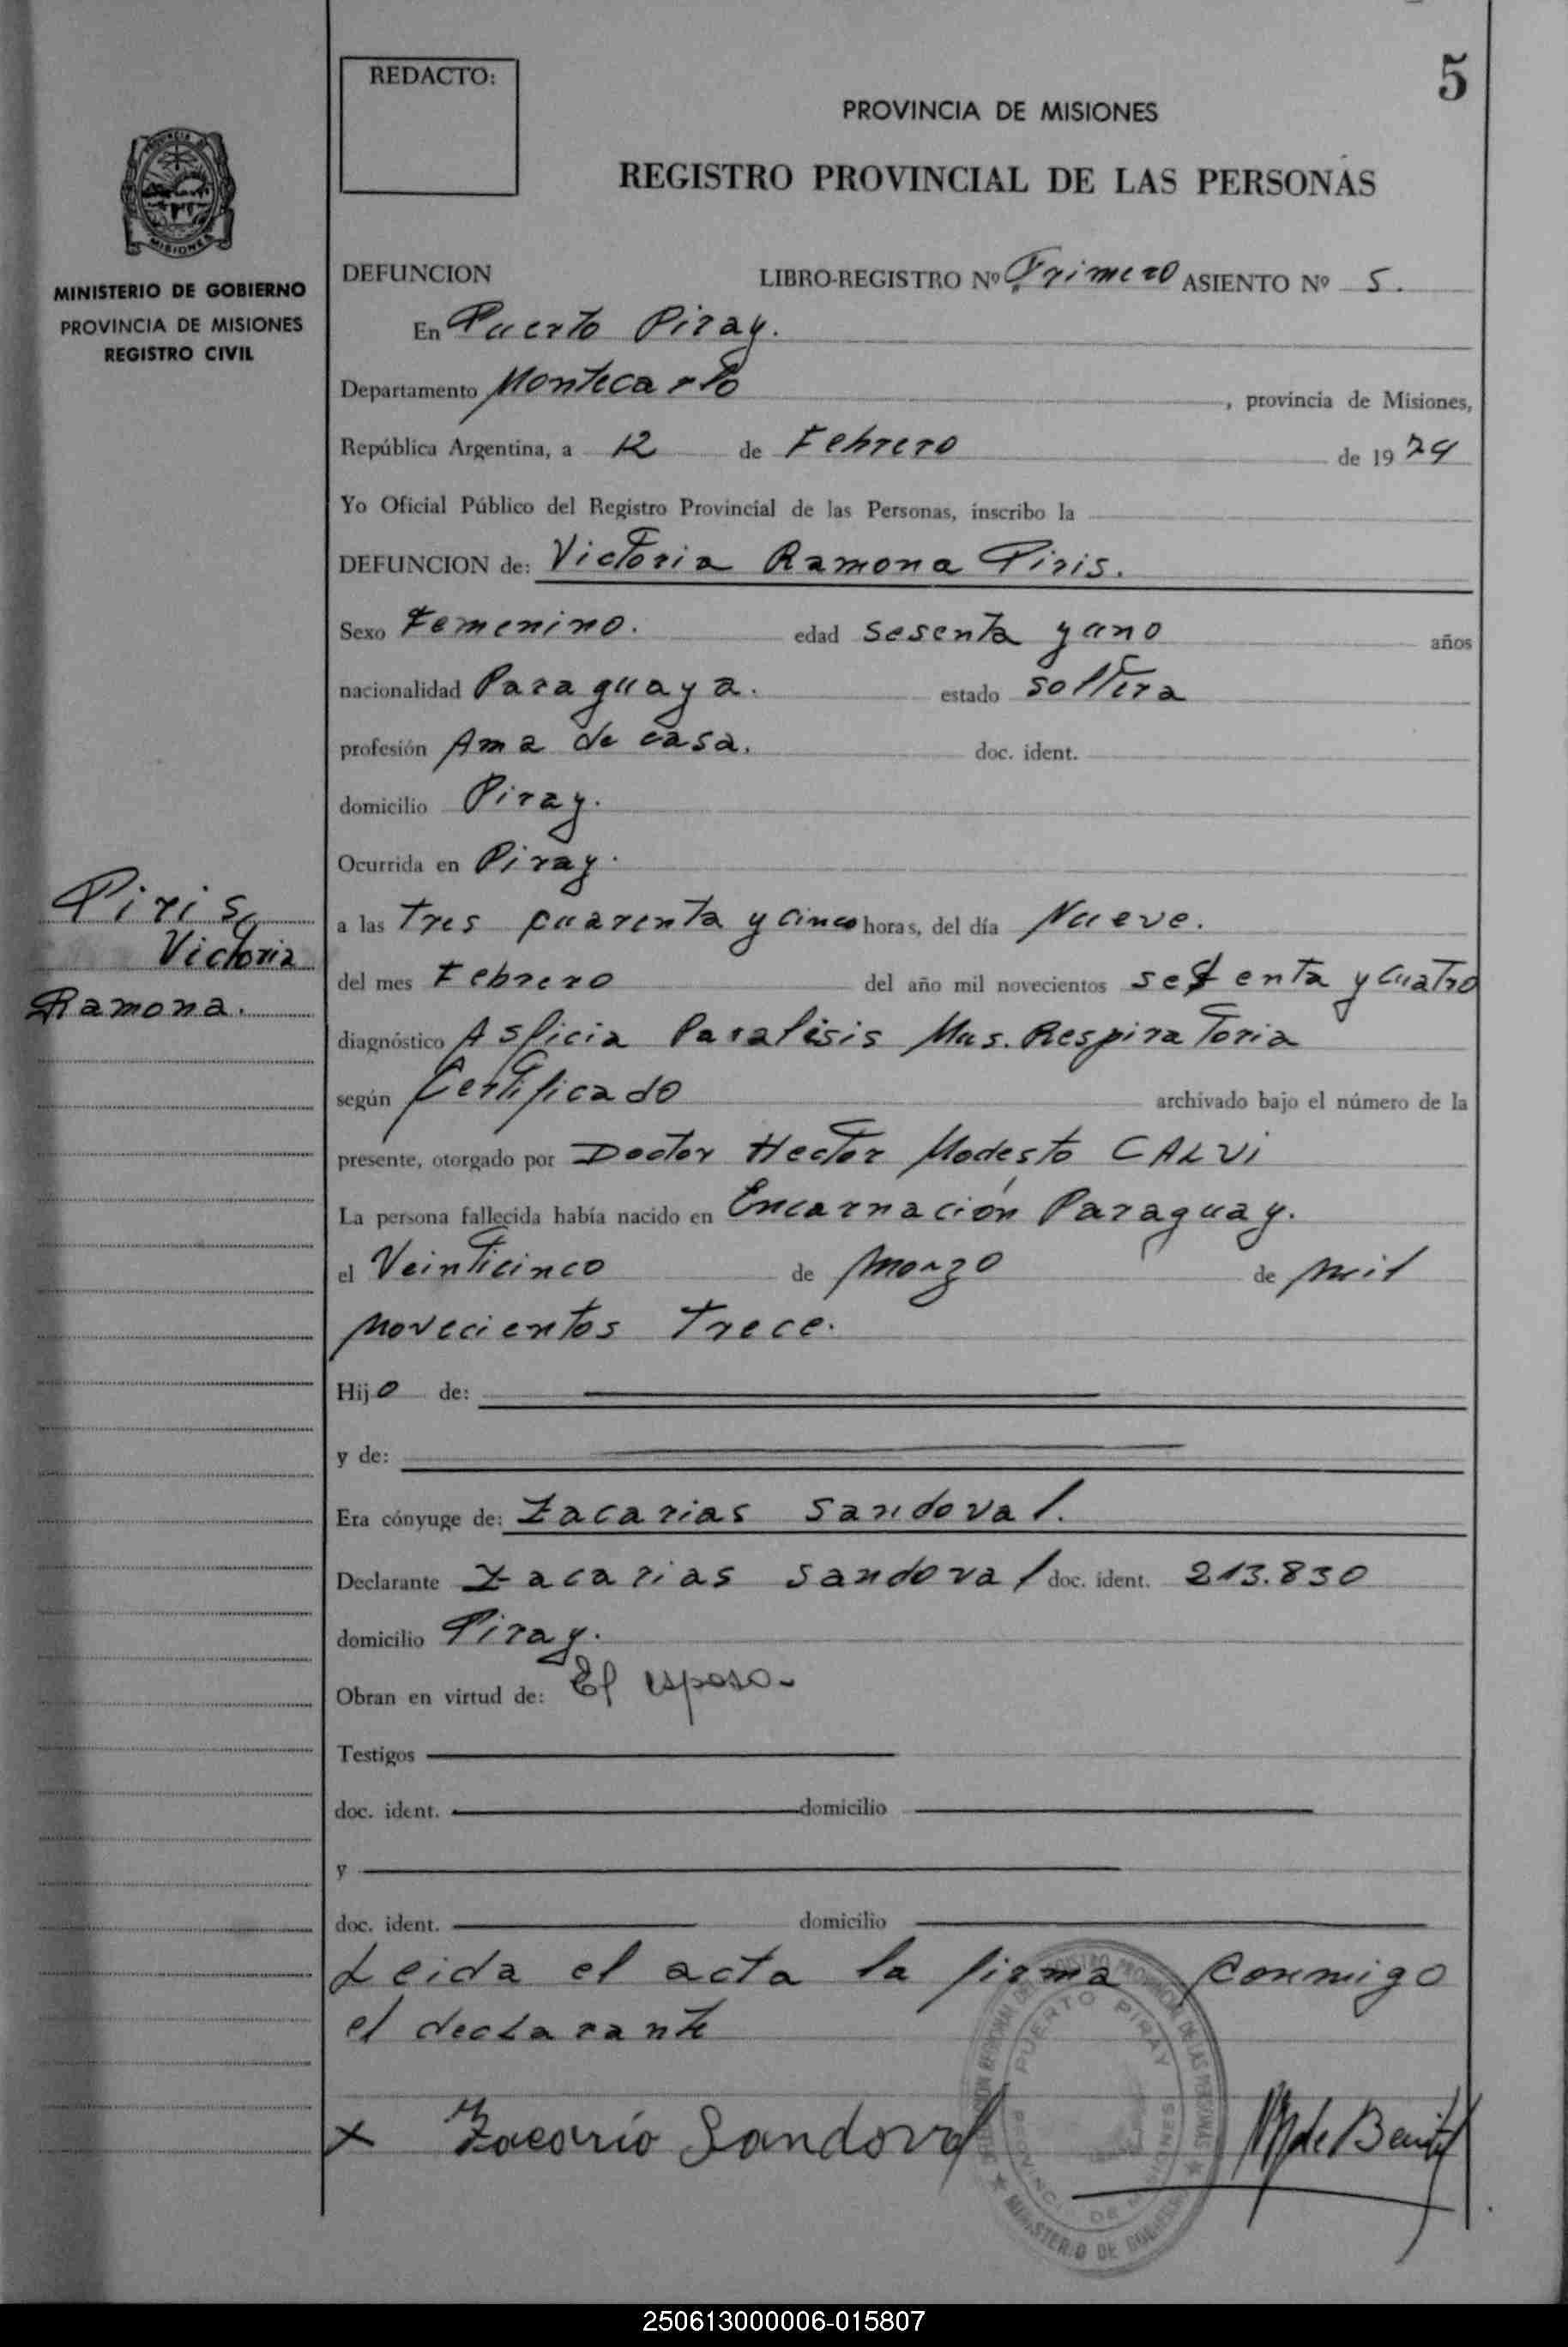 5
REDACTO:
PROVINCIA DE MISIONES
REGISTRO PROVINCIAL DE LAS PERSONAS
PROVINCIA DE
MISIONES
MINISTERIO DE GOBIERNO
PROVINCIA DE MISIONES
REGISTRO CIVIL
DEFUNCION LIBRO-REGISTRO Nº Primero ASIENTO Nº 5.
En Puerto Piray.
Departamento Montecarlo, provincia de Misiones,
República Argentina, a 12 de Febrero de 1974
Yo Oficial Público del Registro Provincial de las Personas, inscribo la
DEFUNCION de: Victoria Ramona Piris.
Sexo Femenino. edad sesenta y uno años
nacionalidad Paraguaya. estado soltera
profesión Ama de casa. doc. ident.
domicilio Piray.
Ocurrida en Piray.
Piris,
Victoria
Ramona.
a las Tres cuarenta y cinco horas, del día Nueve.
del mes Febrero del año mil novecientos setenta y cuatro
diagnóstico Asficia Paralisis Mus. Respiratoria
según Certificado archivado bajo el número de la
presente, otorgado por Doctor Hector Modesto CALVI
La persona fallecida había nacido en Encarnación Paraguay.
el Veinticinco de Marzo de mil
novecientos Trece.
Hijo de:
y de:
Era cónyuge de: Zacarias Sandoval.
Declarante Zacarias Sandoval doc. ident. 213.830
domicilio Piray.
Obran en virtud de: El esposo-
Testigos
doc. ident. domicilio
y
doc. ident. domicilio
Leida el acta la firma conmigo
el declarante
x Zacario Sandoval
PUERTO PIRAY
PROVINCIA DE MISIONES
MINISTERIO DE GOBIERNO
250613000006-015807